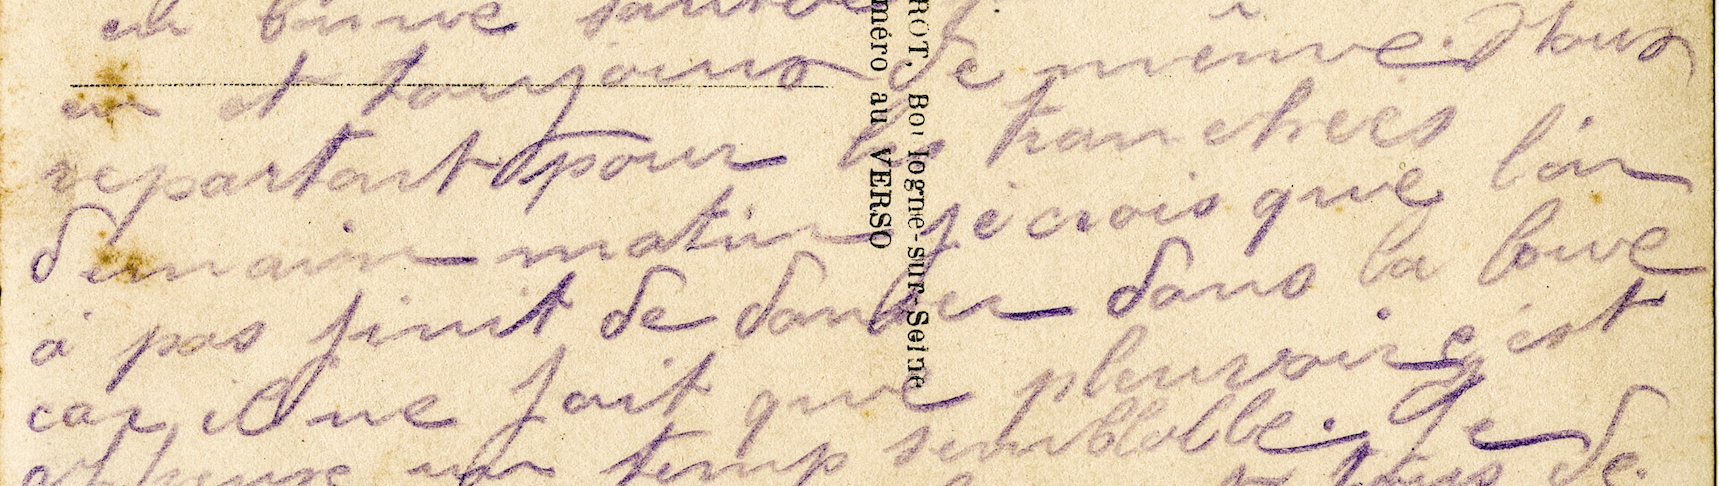 en bonne santée
en et toujours de même. Nous
repartart pour les tranchées
demain matin je crois que l'on
à pas finit de danser dans la boue
car il ne fait que pleuvoire c'est
un temp semblable. Je
de
ROT, Boulogne-sur-Seine
méro au VERSO